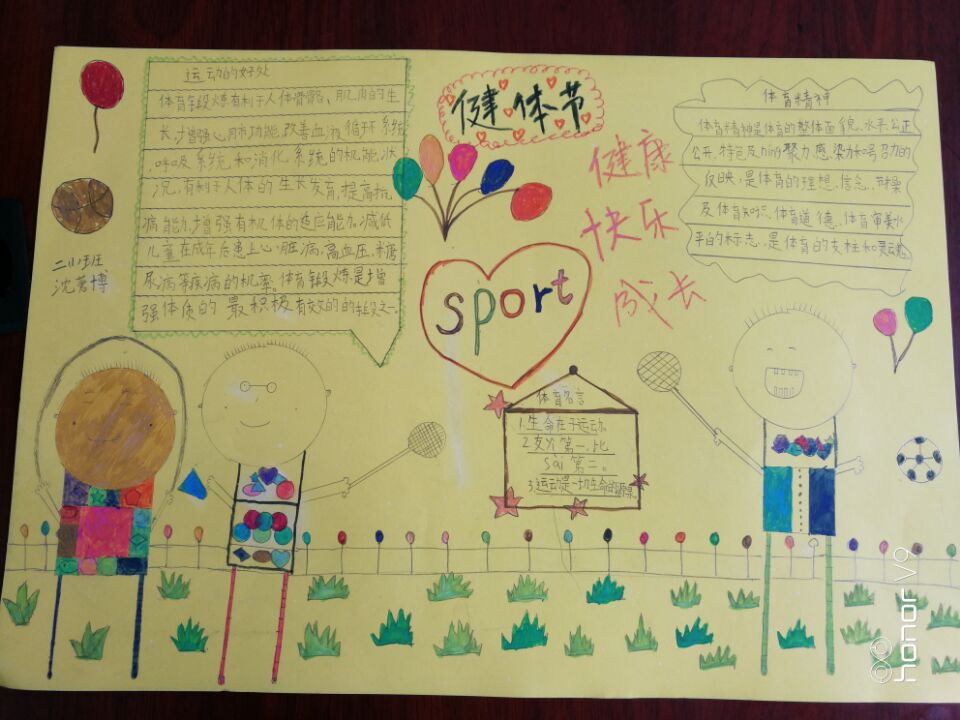 运动的好处
体育锻炼有利于人体骨骼、肌肉的生
长,增强心肺功能,改善血液循环系统
,呼吸系统和消化系统的机能状
况,有利于人体的生长发育,提高抗
病能力,增强有机体的适应能力。减低
儿童在成年后患上心脏病,高血压,米糖
尿病等疾病的机率。体育锻炼是增
强体质的最积极有效的的手段之一。
二小班
沈茗博
健体节
健康
快乐
成长
sport
体育名言
1.生命在于运动。
2.友谊第一,比
sài第二。
3.运动是一切生命的源泉。
体育精神
体育精神是体育的整体面貌,水平,公正
公开,特色及níng聚力感染力和号召力的
反映,是体育的理想、信念、节操
及体育知识、体育道德、体育审美水
平的标志,是体育的支柱和灵魂
honor V9